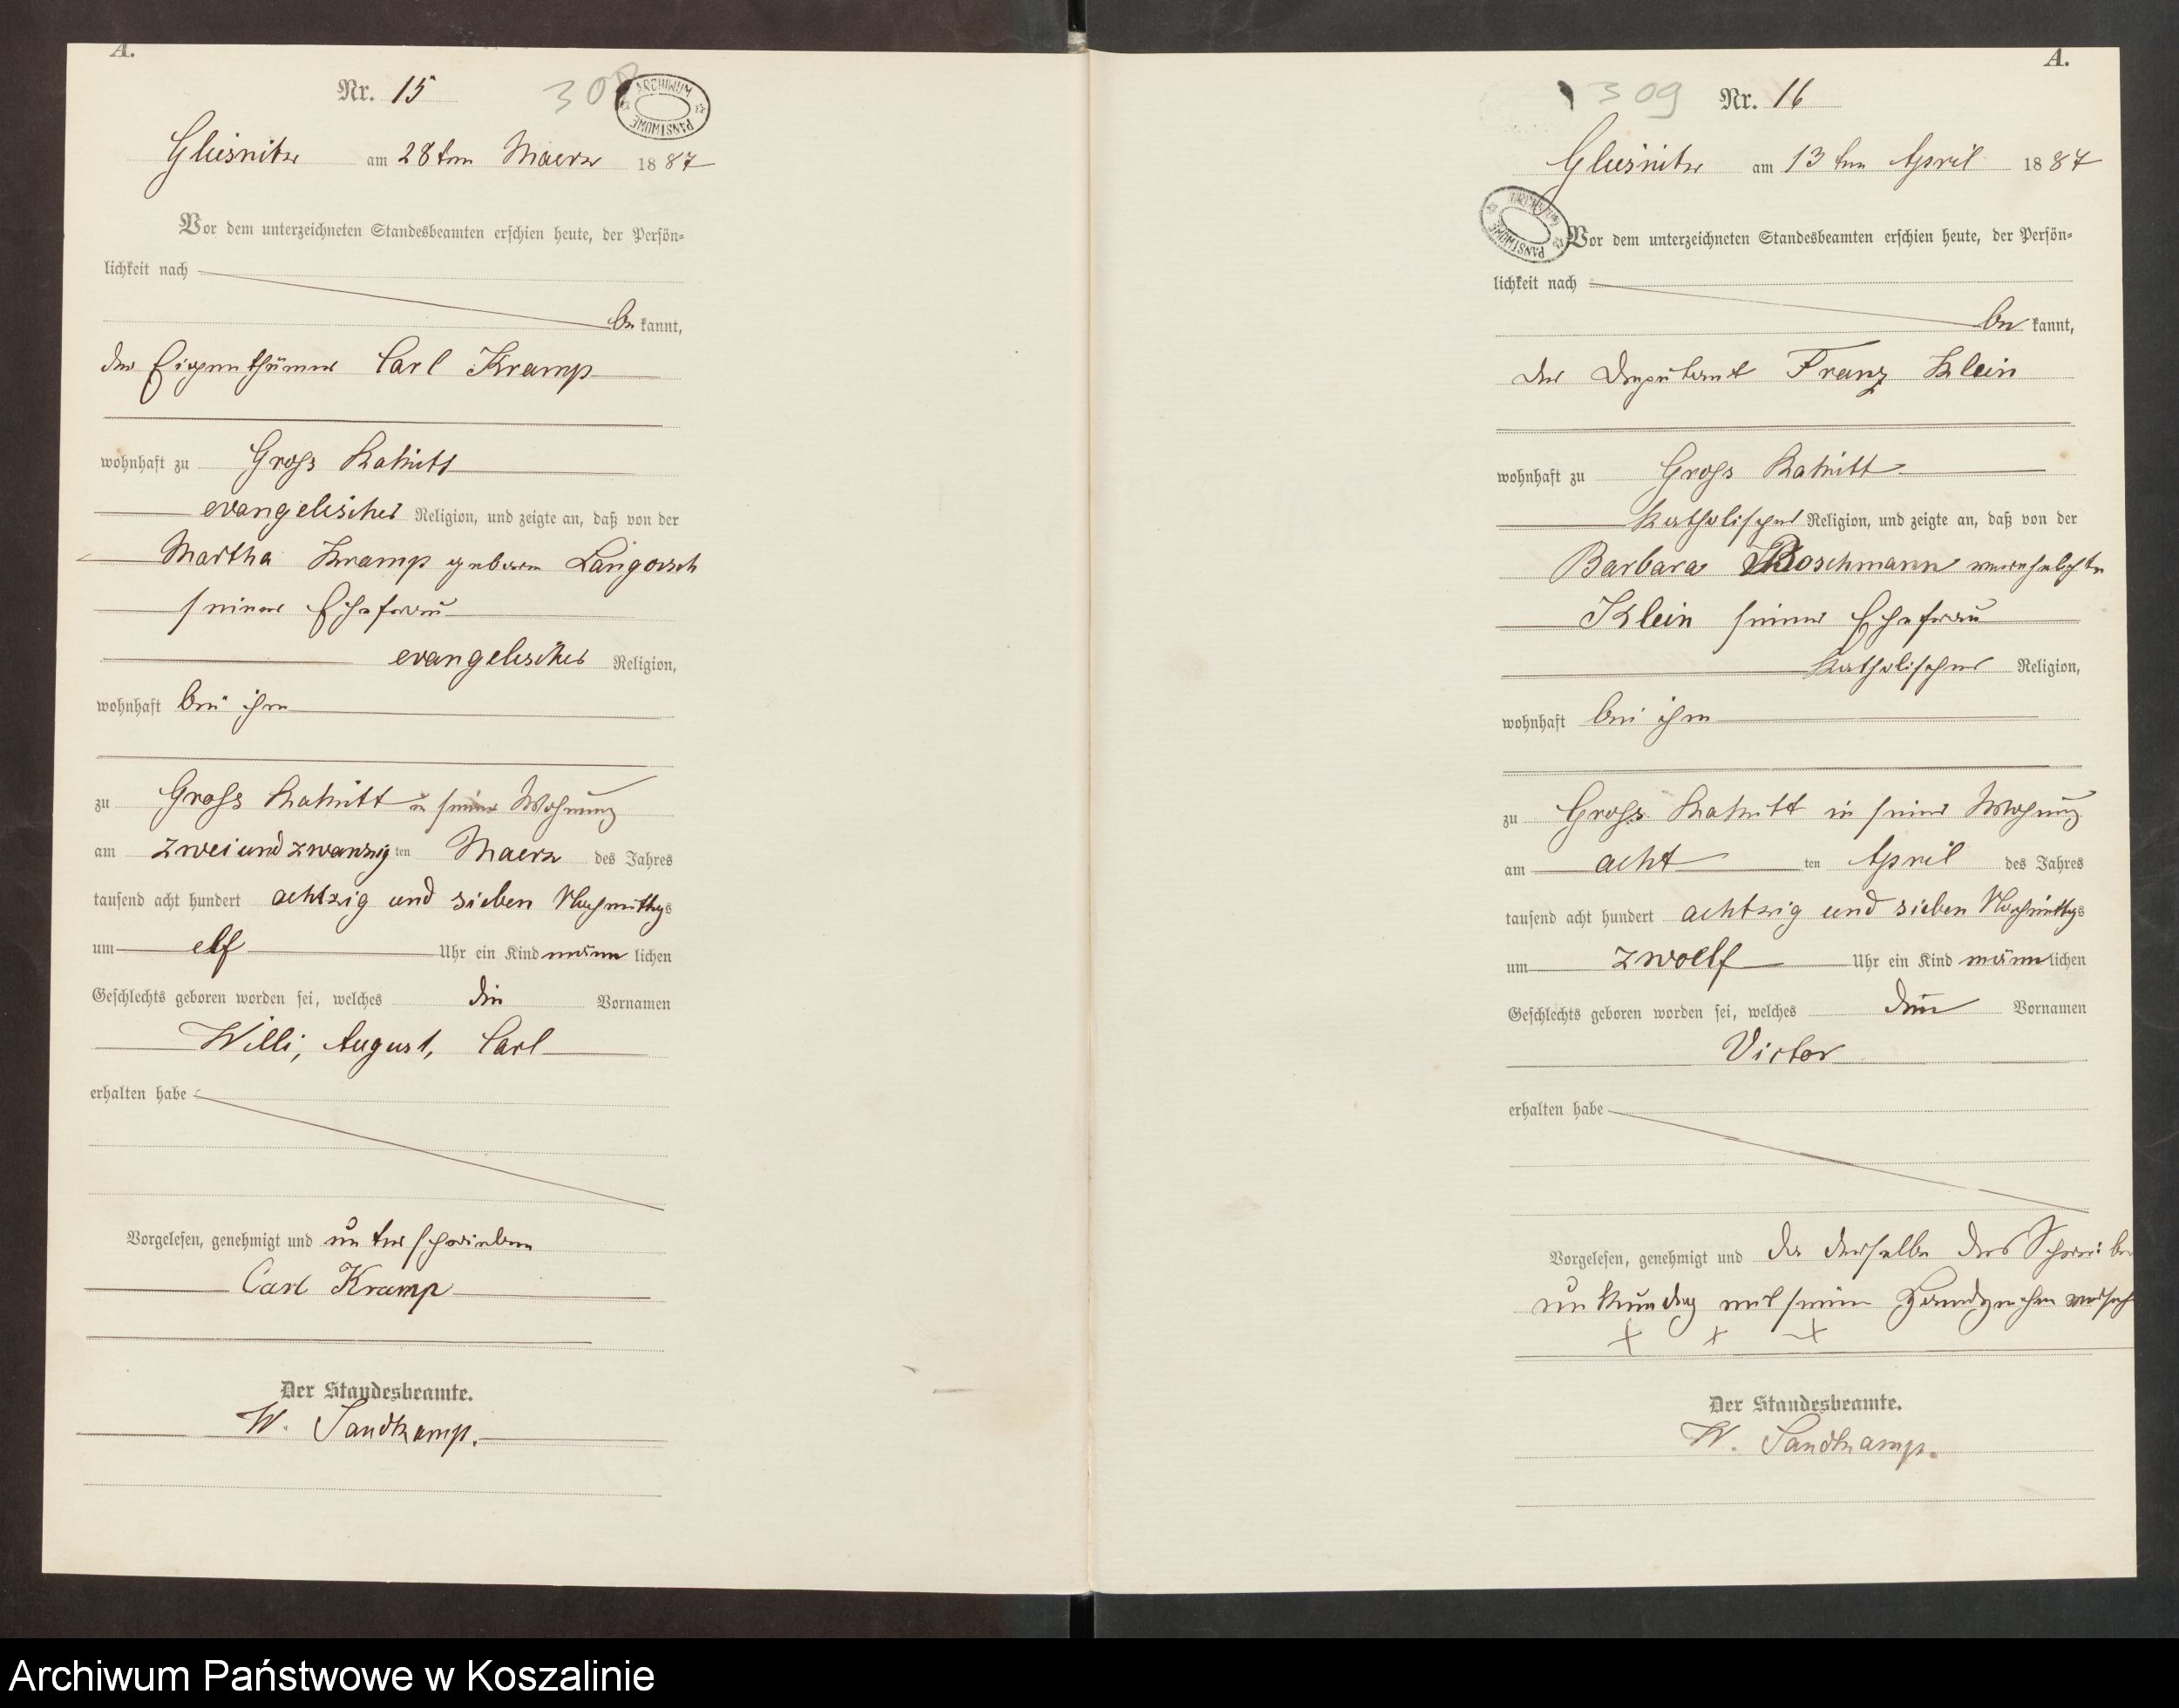 A.
Nr. 15
308
ARCHIWUM PAŃSTWOWE
Gliesnitz am 28ten Maerz 1887
Vor dem unterzeichneten Standesbeamten erschien heute, der Persön-
lichkeit nach
be kannt,
der Eigenthümer Carl Kramp
wohnhaft zu Gross Rakitt
evangelischer Religion, und zeigte an, daß von der
Martha Kramp geboren Langosch
seiner Ehefrau
evangelischer Religion,
wohnhaft bei ihm
zu Gross Rakitt in seiner Wohnung
am zwei und zwanzig ten Maerz des Jahres
tausend acht hundert achtzig und sieben Nachmittags
um elf Uhr ein Kind männ lichen
Geschlechts geboren worden sei, welches die Vornamen
Willi, August, Carl
erhalten habe
Vorgelesen, genehmigt und unterschrieben
Carl Kramp
Der Standesbeamte.
W. Sandkamp.
A.
309
Nr. 16
Gliesnitz am 13ten April 1887
ARCHIWUM PAŃSTWOWE
Vor dem unterzeichneten Standesbeamten erschien heute, der Persön-
lichkeit nach
be kannt,
der Deputant Franz Klein
wohnhaft zu Gross Rakitt
katholischer Religion, und zeigte an, daß von der
Barbara Roschmann verehelichte
Klein seiner Ehefrau
katholischer Religion,
wohnhaft bei ihm
zu Gross Rakitt in seiner Wohnung
am acht ten April des Jahres
tausend acht hundert achtzig und sieben Nachmittags
um zwoelf Uhr ein Kind männ lichen
Geschlechts geboren worden sei, welches den Vornamen
Victor
erhalten habe
Vorgelesen, genehmigt und da derselbe des Schreibens
unkundig mit seinem Handzeichen versehen
x x x
Der Standesbeamte.
W. Sandkamp.
Archiwum Państwowe w Koszalinie